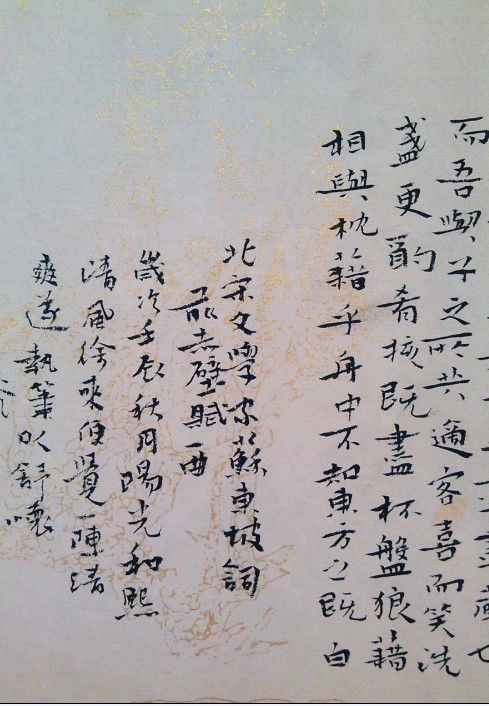 而吾與子之所共適客喜而笑洗
盞更酌肴核既盡杯盤狼藉
相與枕藉乎舟中不知東方之既白
北宋文學家蘇東坡詞
前赤壁賦一曲
歲次壬辰秋月陽光和熙
清風徐來便覺一陣清
爽遂執筆以舒懷